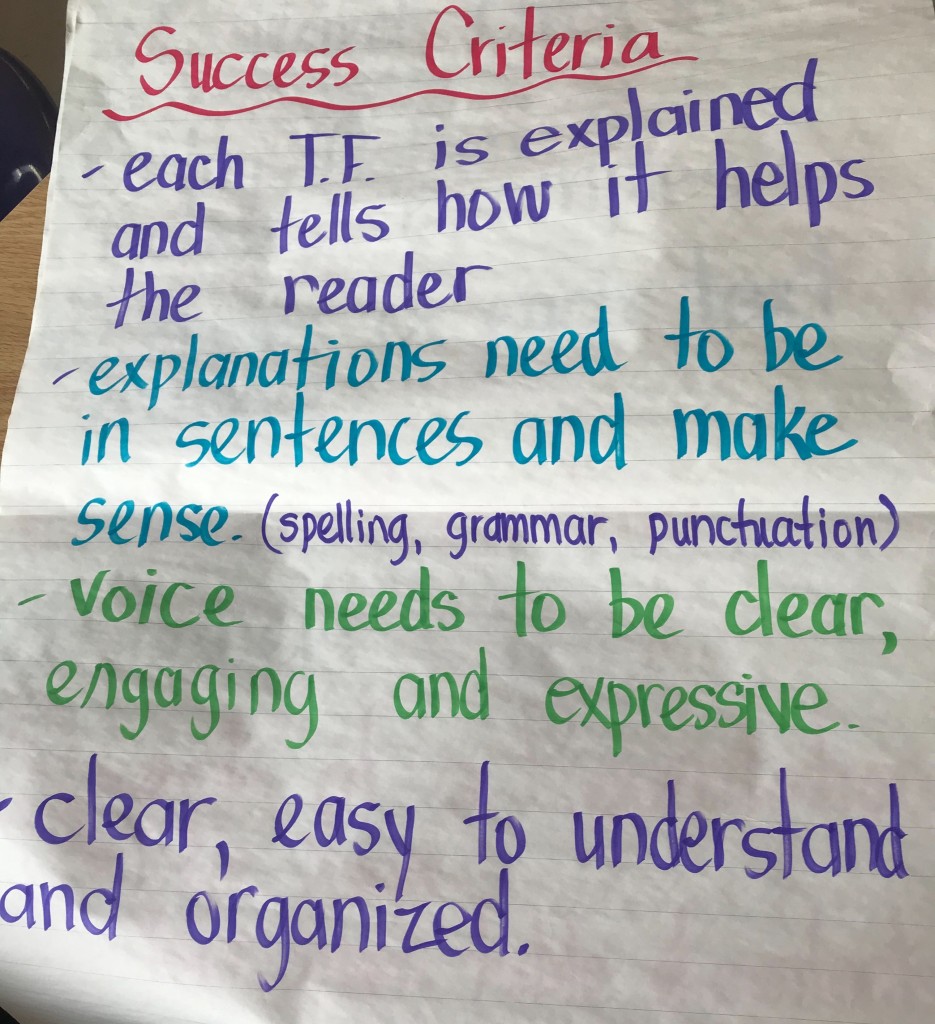 Success Criteria
- each T.F. is explained
and tells how it helps
the reader
- explanations need to be
in sentences and make
sense. (spelling, grammar, punctuation)
- voice needs to be clear,
engaging and expressive.
- clear, easy to understand
and organized.